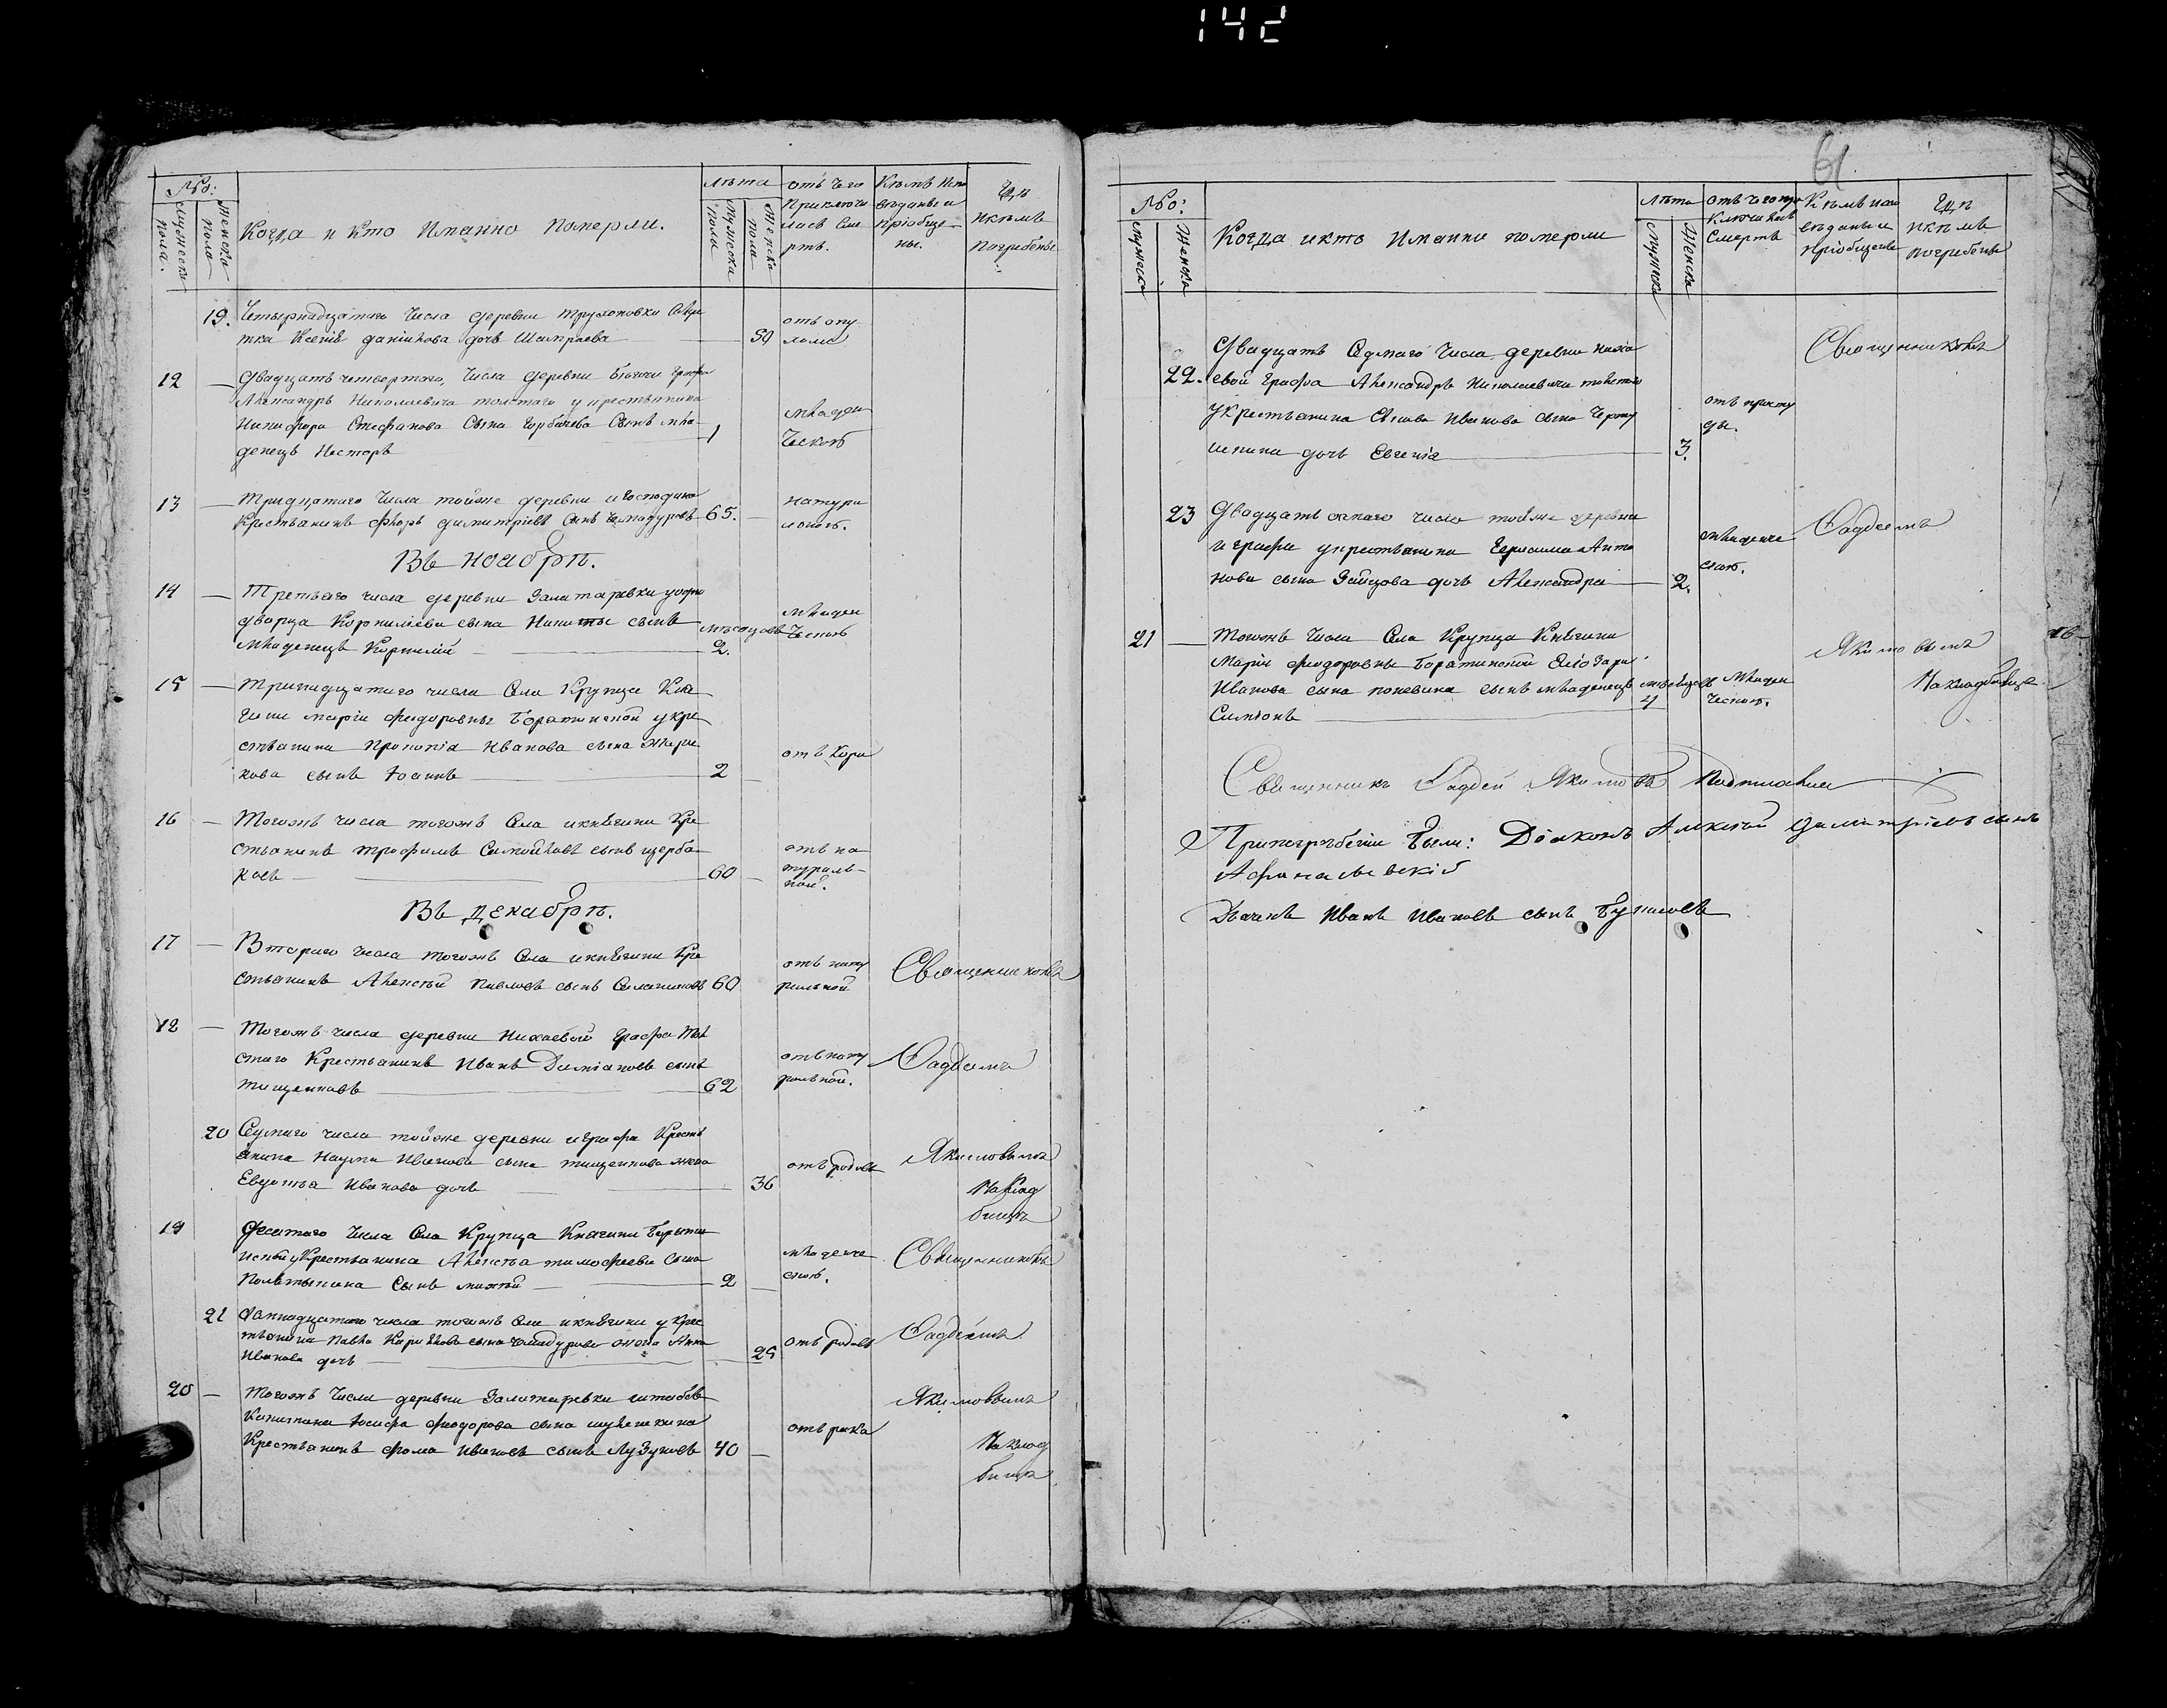 142
№:
Мужеска пола.
Женска пола
Когда и кто Иманно померли.
лѣта
Мужеска пола
Женска пола
отъ чего
приключи
лась сме
рть.
Кѣмъ испо
вѣданы и
пріобще
ны.
Гдѣ
и кѣмъ
погребены
19. Четырнадцатаго Числа деревни
Ксенія дочь 50
отъ опу
холи
12 — Двадцать четвертаго, Числа деревни графа
Александръ Николаевича толстаго у крестьянина
Никифора Стефанова Сына Горбачева Сынъ мла
денецъ Несторъ 1
младен
ческой
13 — Тридцатаго Числа тойже деревни и господина
Крестьянинъ Флоръ димитріевъ Сынъ Чемодуровъ 65. —
натура
льной.
Въ ноябрѣ.
14 — Третьяго числа деревни Залитаревки у одно
дворца Корниліева сына Никиты сынъ
младенецъ Корнилій — мѣсяцовъ 2.
младен
ческой
15 — Тринадцатаго числа Села Крупца Кня
гини маріи феодоровны Боратинской у кре
стьянина Прокопія Иванова сына
кова сынъ Іоаннъ 2 —
отъ Кори
16 — Тогожъ числа тогожъ Села и княгини Кре
стьянинъ трофимъ Самойловъ сынъ щерба
ковъ — 60 —
отъ на
тураль
ной.
Въ декабрѣ.
17 — Втораго числа тогожъ Села и княгини Кре
стьянинъ Алексѣй Павловъ сынъ 60
отъ нату
ральной
Священникомъ
18 — Тогожъ числа деревни Нихаевой графа Тол
стаго Крестьянинъ Иванъ Даміановъ сынъ
тищенковъ 62
отъ нату
ральной.
Фаддеемъ
20 Седмаго числа тойже деревни и графа Кресть
янина Наума Иванова сына тищенкова жена
Евдотья Иванова дочь 36
отъ родовъ
Якимовымъ
На клад
бищѣ
19 Десятаго Числа Села Крупца Княгини Боратин
ской у Крестьянина Алексѣя тимофеева Сына
Сынъ 2 —
младенче
ской.
Священникомъ
21 Двенадцатаго числа тогожъ Села и княгини у крес
тьянина Павла Кирилова сына Чемодурова жена Анна
Иванова дочь 25
отъ родовъ
Фаддеемъ
20 — Тогожъ Числа деревни Залитаревки штабсъ
Капитана Іосифа Феодорова сына
Крестьянинъ Фома Ивановъ сынъ Лузуновъ 40 —
отъ рака
Якимовымъ
На клад
бищѣ
61
№:
Мужеска
Женска
Когда и кто Иманно померли
лѣта
Мужеска
Женска
отъ чего при
ключилась
Смерть
Кѣмъ испо
вѣданы и
пріобщены
Гдѣ
и кѣмъ
погребены
22. Двадцать Седмаго Числа деревни Ниха
евой Графа Александръ Николаевича толстаго
у крестьянина Савы Иванова сына
дочь Евгенія 3.
отъ просту
ды.
Священникомъ
23 Двадцать осмаго числа тойже деревни
и графа у крестьянина Герасима Анто
нова сына Зайцова дочь Александра 2.
младенче
ской.
Фаддеемъ
21 — Тогожъ Числа Села Крупца Княгини
Маріи феодоровны Боратинской Елеазара
Иванова сына сынъ младенецъ
Симіонъ мѣсяцовъ 4
младен
ческой.
Якимовымъ
На кладбище
Священникъ Фаддей Якимовъ Подписался
При погребеніи были: Діаконъ Алексѣй Димитріевъ сынъ
Афанасьевскій
Дьячекъ Иванъ Ивановъ сынъ